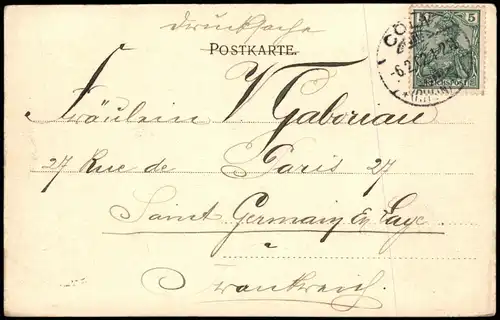 Drucksache
POSTKARTE.
5
CÖLN
6.2.02.1-2N
REICHSPOST
Fräulein V. Gaboriau
27 Rue de Paris 27
Saint Germain En Laye
a
Frankreich